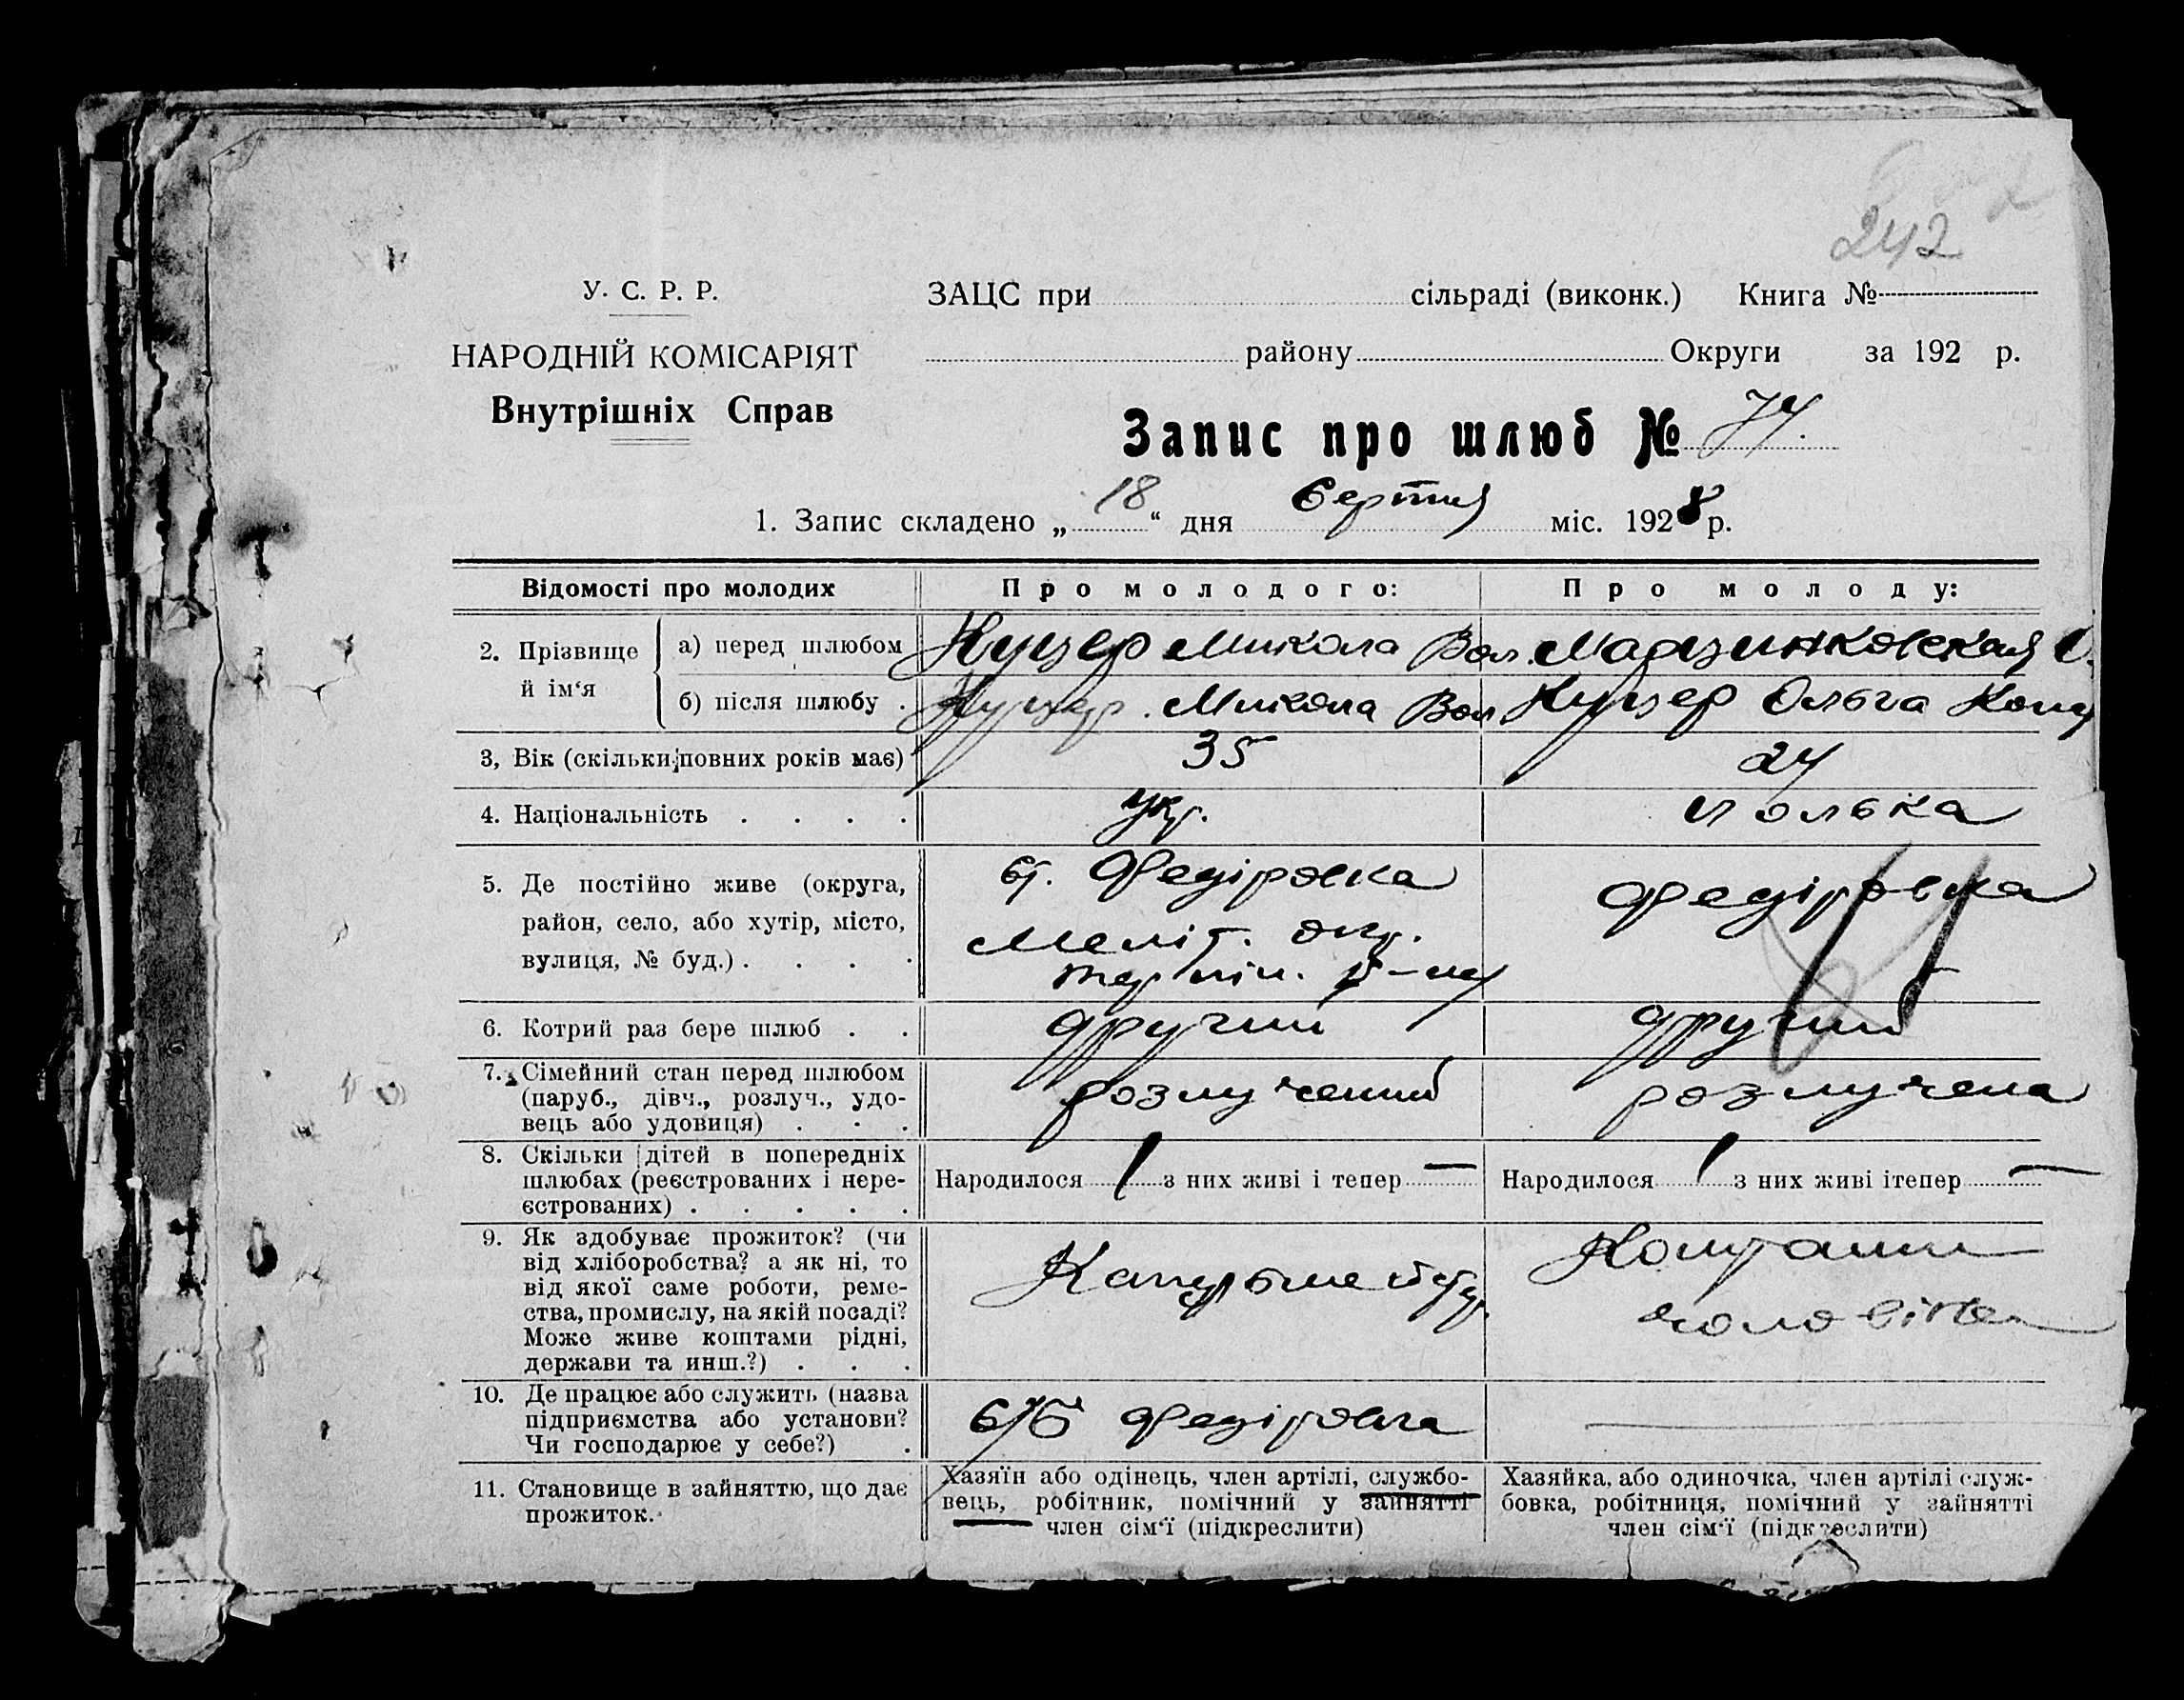 242
У. С. Р. Р.
ЗАЦС при сільраді (виконк.) Книга №
НАРОДНІЙ КОМІСАРІЯТ
району Округи за 192 р.
Внутрішніх Справ
Запис про шлюб № 74.
1. Запис складено „ 18 “ дня Серпня міс. 1928 р.
Відомості про молодих
Про молодого:
Про молоду:
2. Прізвище й ім‘я
а) перед шлюбом
Куцер Микола Вол.
О.
б) після шлюбу .
Куцер Микола Вол
Куцер Ольга
3, Вік (скільки повних років має)
35
24
4. Національність . . . .
укр.
полька
5. Де постійно живе (округа,
район, село, або хутір, місто,
вулиця, № буд.) . . . .
ст. Федіровка
Меліт. окр.
Федіровка
6. Котрий раз бере шлюб . .
другий
другий
7. Сімейний стан перед шлюбом
(паруб., дівч., розлуч., удо-
вець або удовиця) . . .
розлучений
розлучена
8. Скільки дітей в попередніх
шлюбах (реєстрованих і нере-
єстрованих) . . . . .
Народилося 1 з них живі і тепер —
Народилося 1 з них живі ітепер —
9. Як здобуває прожиток? (чи
від хліборобства? а як ні, то
від якої саме роботи, реме-
ства, промислу, на якій посаді?
Може живе коштами рідні,
держави та инш.?) . . .
Коштами
чоловіка
10. Де працює або служить (назва
підприємства або установи?
Чи господарює у себе?) .
Федіровка
11. Становище в зайняттю, що дає
прожиток.
Хазяїн або одінець, член артілі, службо-
вець, робітник, помічний у зайнятті
член сім‘ї (підкреслити)
Хазяйка, або одиночка, член артілі служ-
бовка, робітниця, помічний у зайнятті
член сім‘ї (підкреслити)